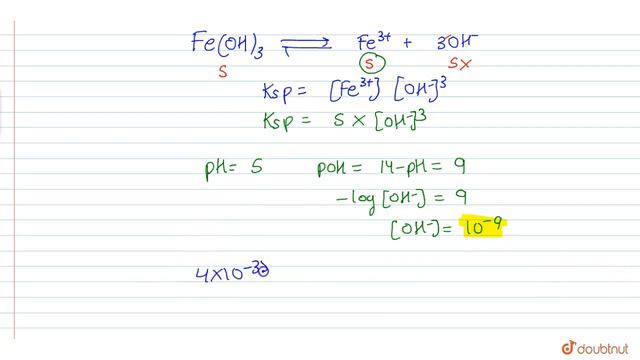 Fe(OH)₃ ⇌ Fe³⁺ + 3OH⁻
S S SX
Ksp = [Fe³⁺] [OH⁻]³
Ksp = S × [OH⁻]³
pH = 5 pOH = 14 - pH = 9
- log [OH⁻] = 9
[OH⁻] = 10⁻⁹
4×10⁻³
doubtnut